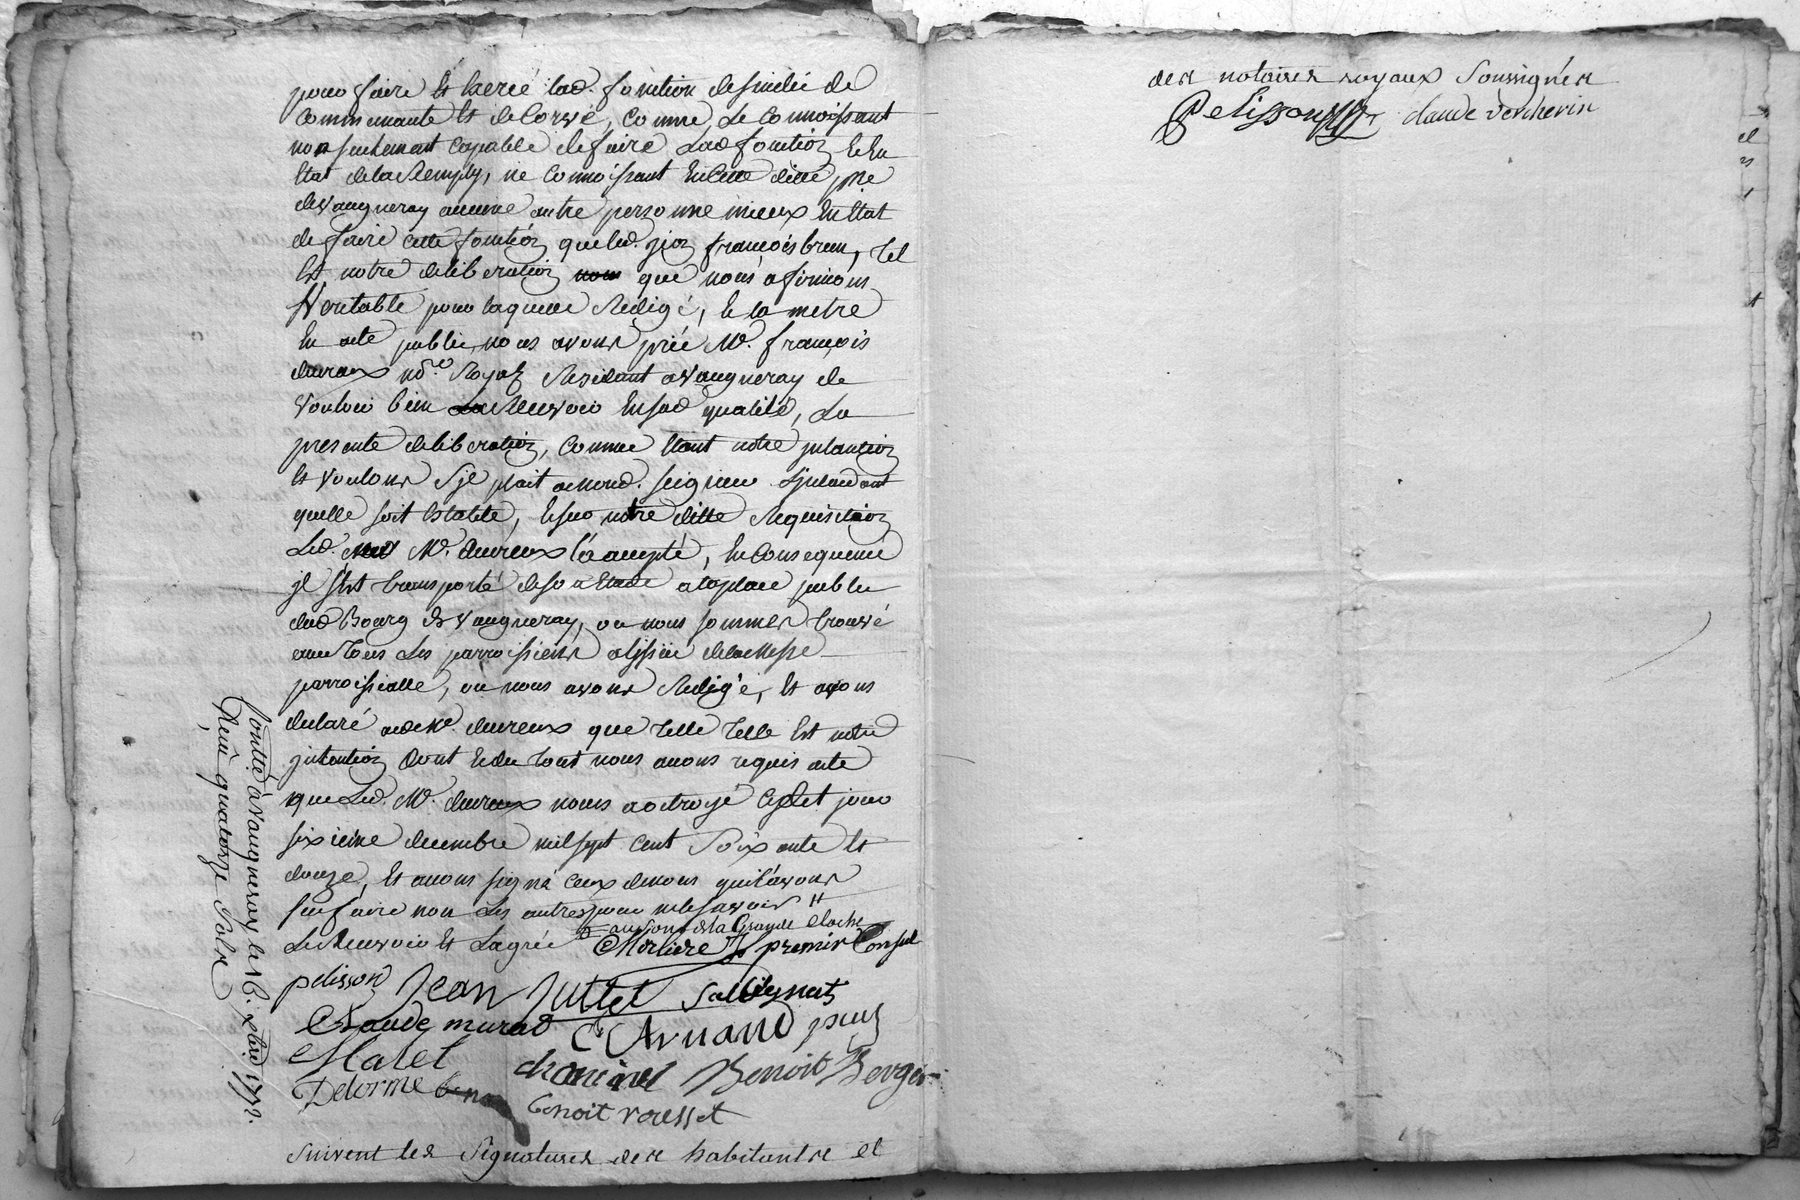 pour faire et exercé lad. fonction de sindic de
Communauté et de Corvé, Comme Le Connoissant
non seulement capable de faire Lad fonction Et En
Etat de la Remply, ne Connoissant En Cette ditte psse
de Vaugneray aucune autre personne mieux En Etat
de faire cette fonction que led. sr françois brun, Tel
Est notre deliberation que nous afirmons
Veritable pour laquelle Redigé, Et la metre
En acte public nous avons prié Me. françois
not.re Royal Residant a Vaugneray de
Vouloir bien Recevoir En sad qualité, La
presente deliberation, Comme Etant notre jntantion
Et Voulons S'jl plait a mond. seigneur L'jntandant
quelle soit Estable, Et sur notre ditte Requisition
Led. Me. l'a accepté, En Consequence
jl s'est transporté de son Etude a la place public
dud Bourg de Vaugneray, ou nous sommes trouvé
avec Tous Les parroissiens a l'issue de la Messe
parroissialle, ou nous avons Redigé, Et avons
declaré aud Me. que Telle Telle Est notre
jntention Dont Et du Tout nous avons requis acte
que Led. Me. nous a octroyé Ce jour
sixieme decembre mil sept Cent Soixante Et
douze, Et avons signé Ceux de nous qui l'avons
sceu faire non Les autres pour ne le savoir #
Le Recevoir Et Lagrée # au son de la Grande Cloche
Morliere premir Consul
pelisson Jean Juttet Salignat
Claude murat C Arnaud
Matel chaninel Benoit Berger
Delorme
benoit rousset
suivent les Signatures des habitants et
Controllé à Vaugneray le 16. xbre 1772.
Reçu quatorze Sols
des notaires royaux Soussignés
Pelisson claude Vercherin